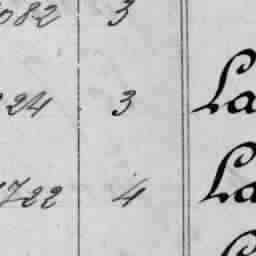 082 3
24 3 La
722 4 La